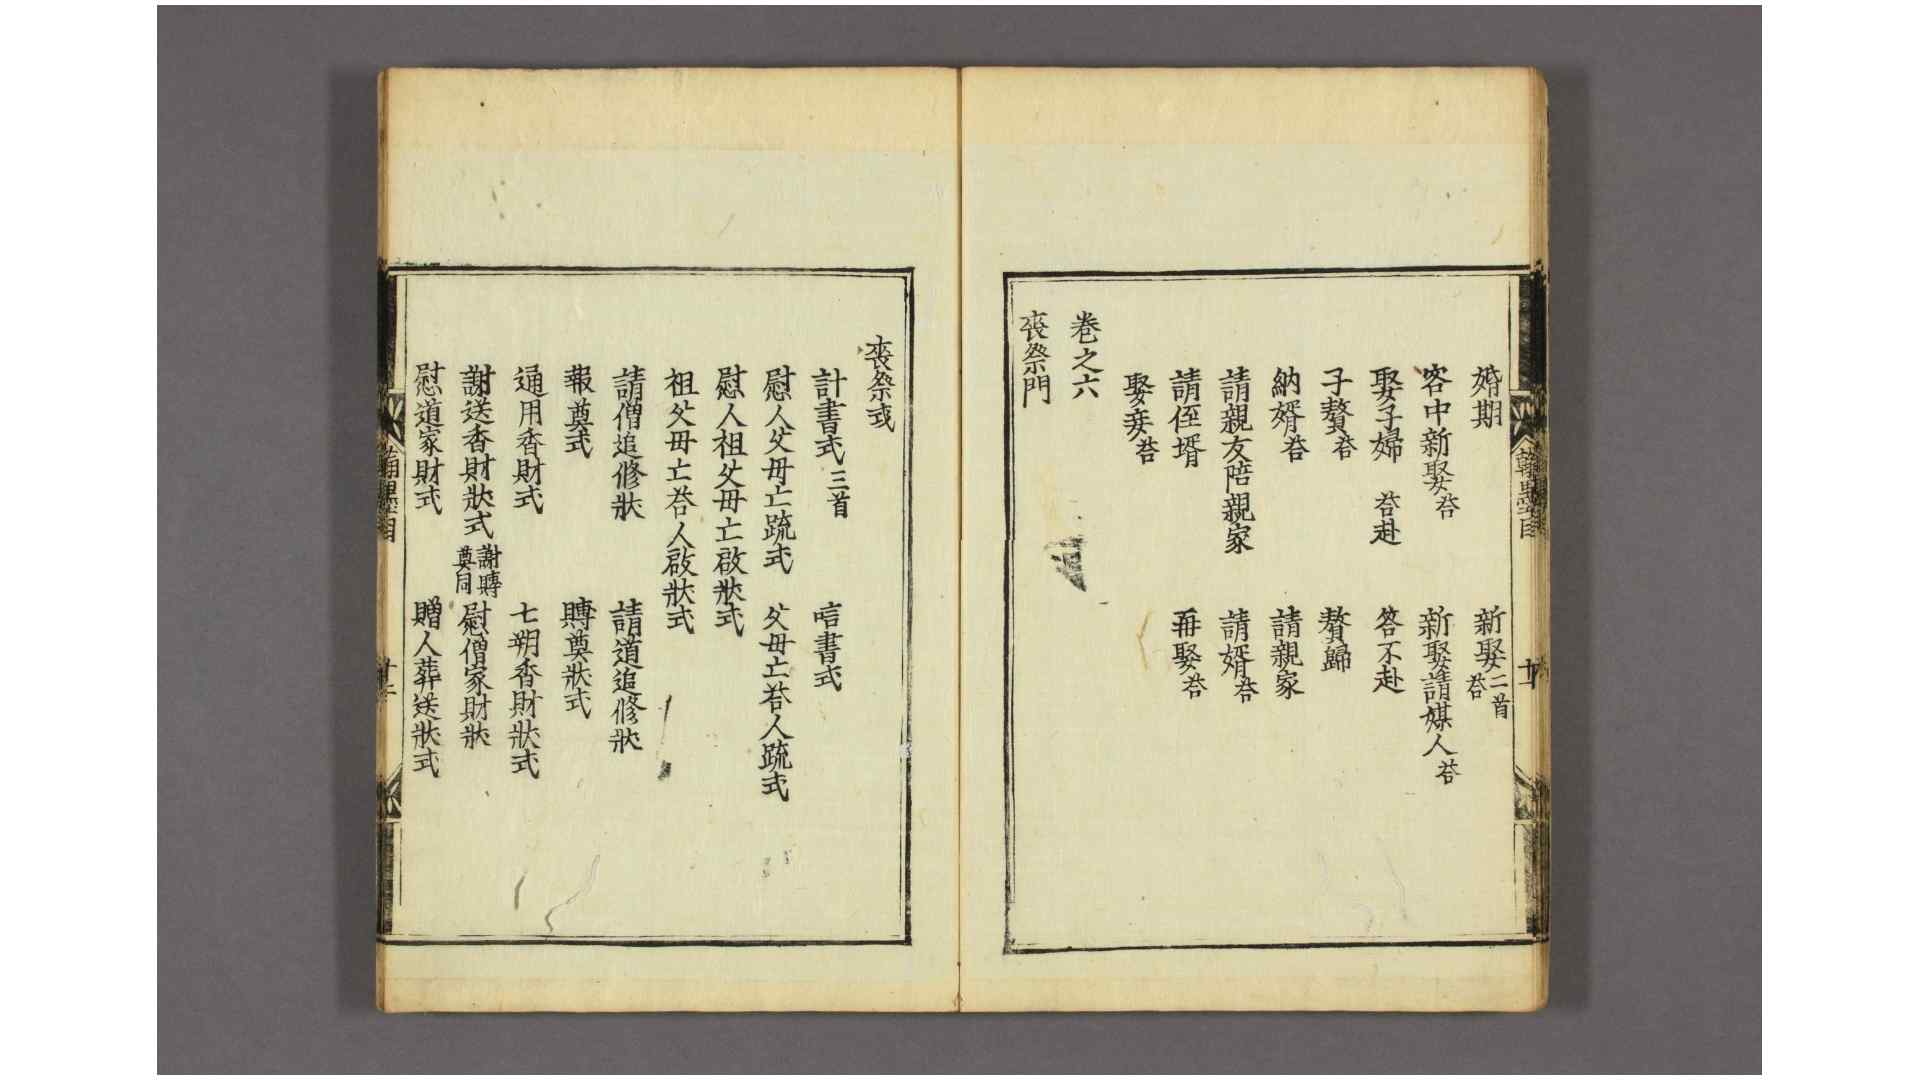 婚期　新娶二首荅
客中新娶荅　新娶請媒人荅
娶子婦　荅赴　答不赴
子贅荅　贅歸
納婿荅　請親家
請親友陪親家　請婿荅
請侄壻　再娶荅
娶妾荅
卷之六
喪祭門
喪祭式
訃書式三首　唁書式
慰人父母亡疏式　父母亡荅人疏式
慰人祖父母亡啟狀式
祖父母亡荅人啟狀式
請僧追修狀　請道追修狀
報奠式　賻奠狀式
通用香財式　七朔香財狀式
謝送香財狀式謝賻奠同　慰僧家財狀
慰道家財式　贈人葬送狀式